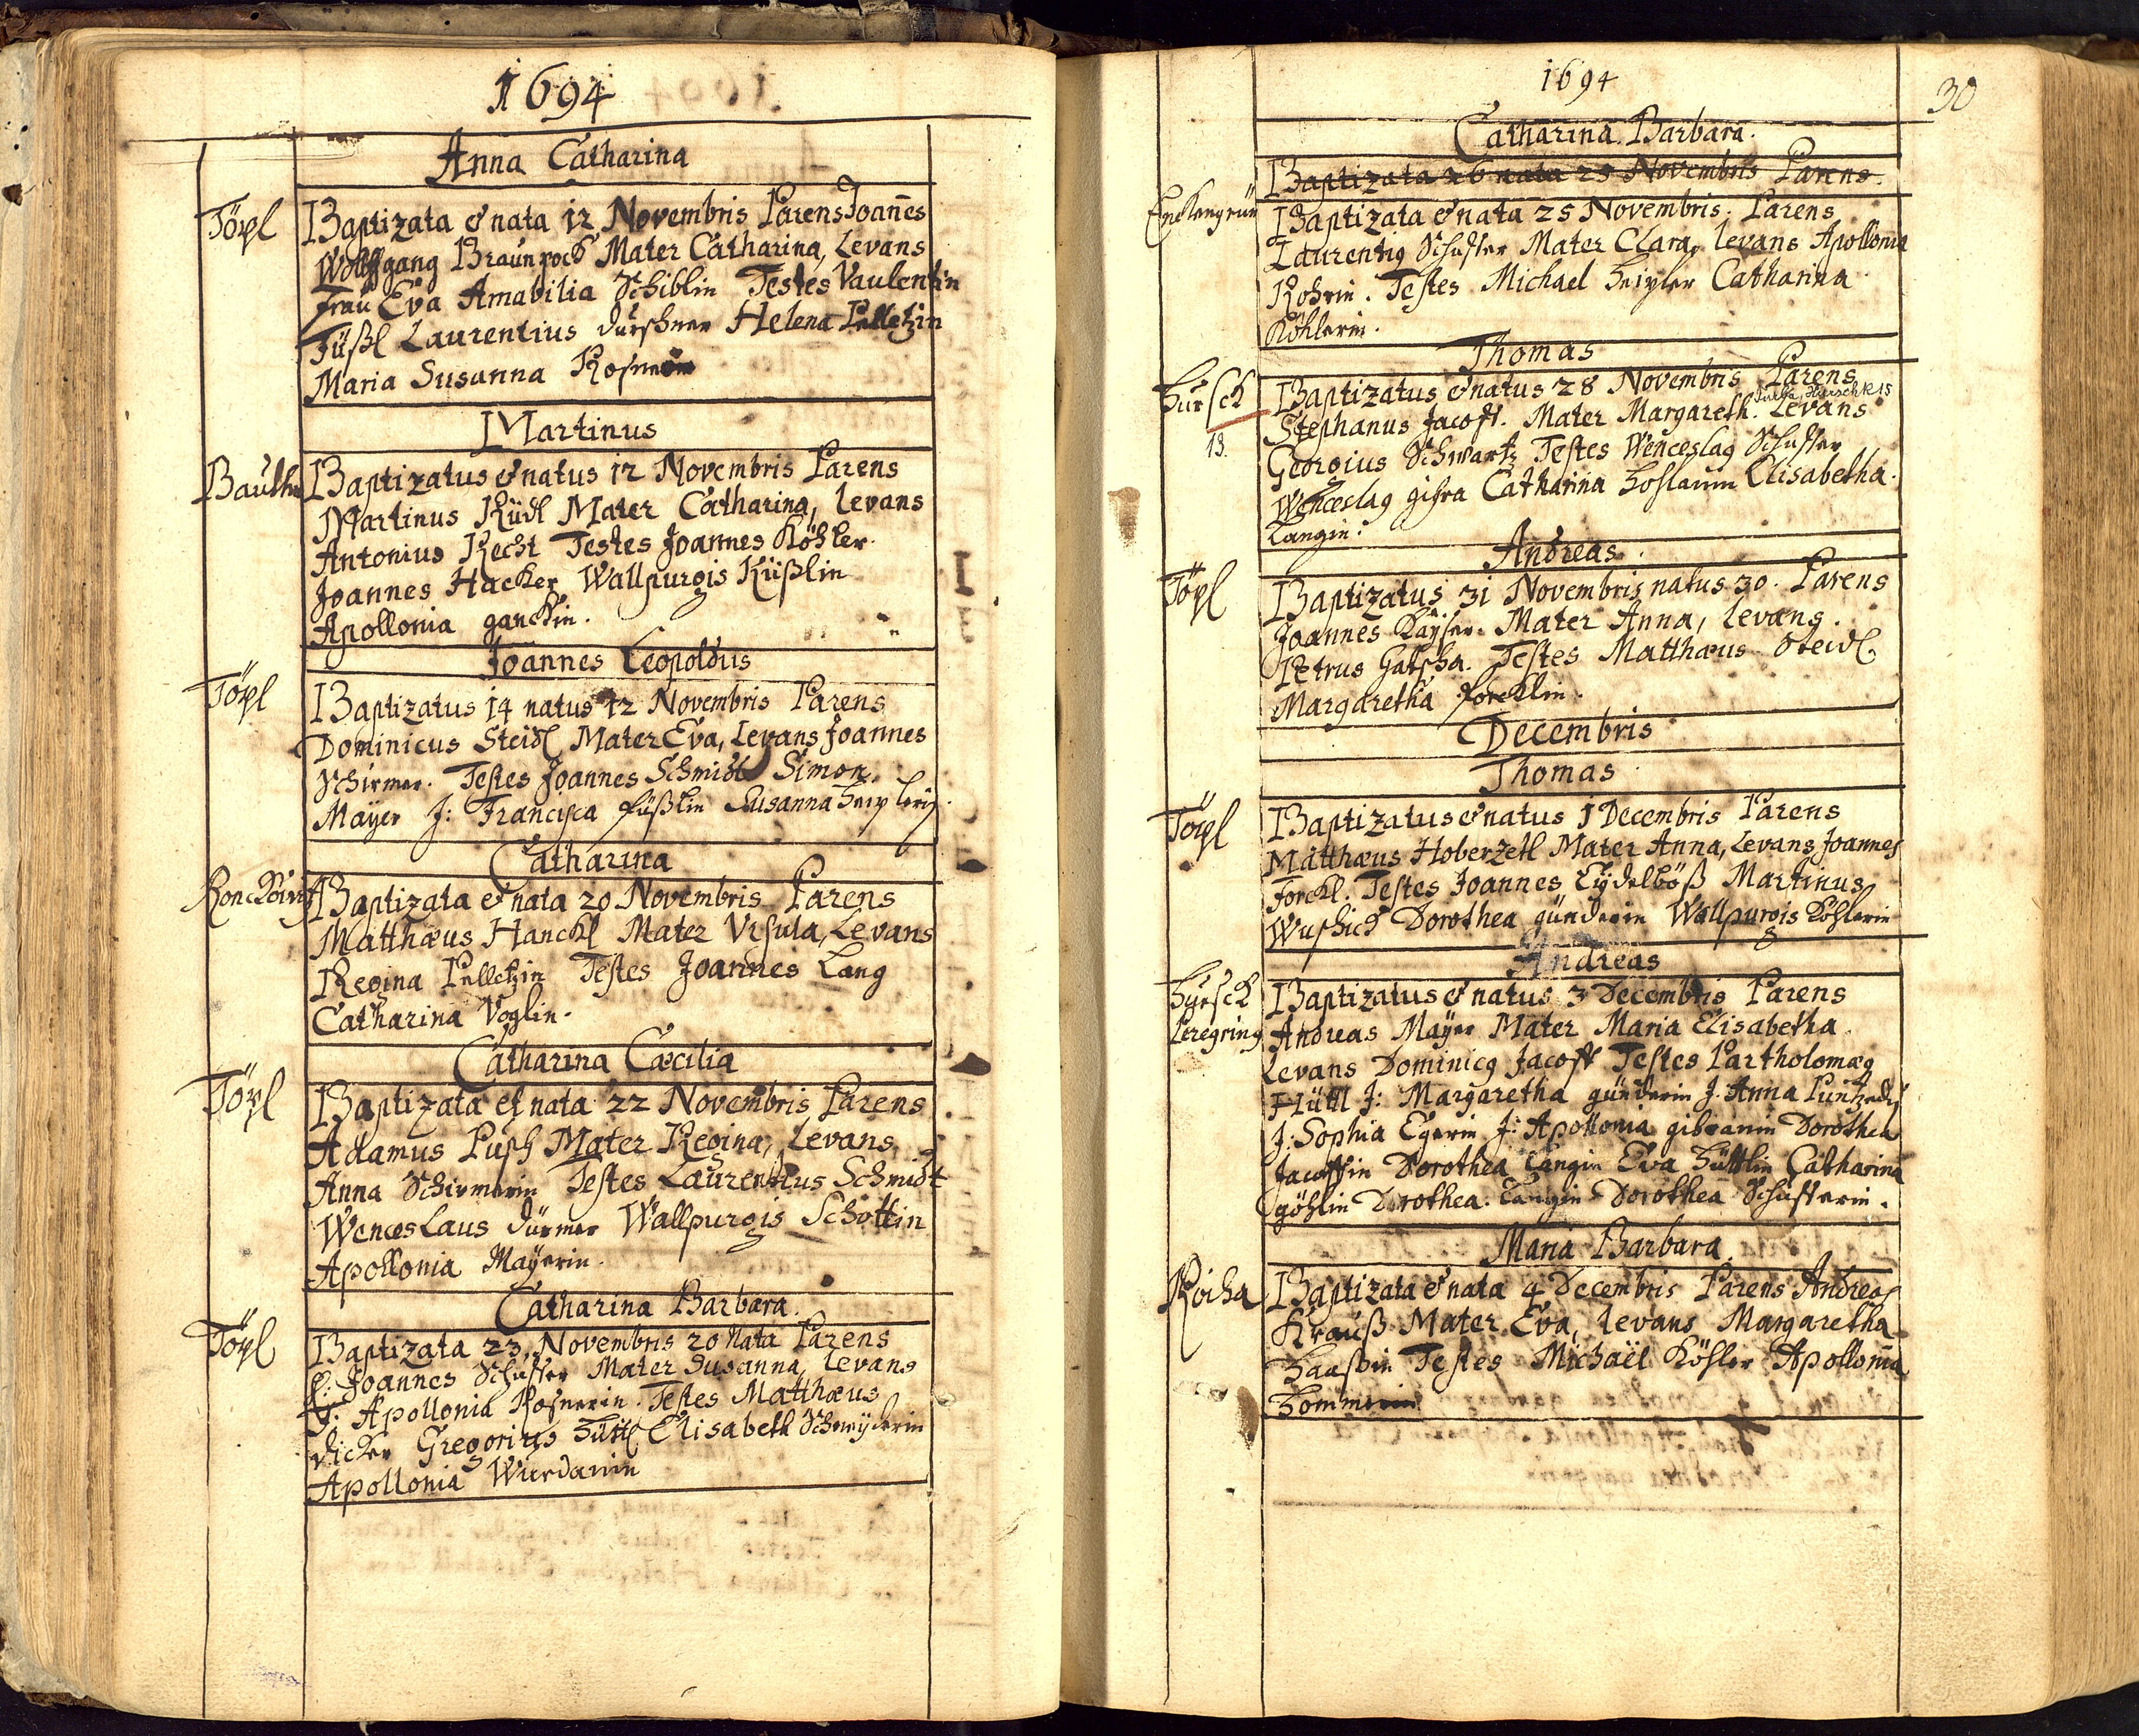 1694
Anna Catharina
Töpl
Baptizata & nata 12 Novembris Parens Joannes
Wolffgang Braunpock Mater Catharina, Levans
Frau Eva Amabilia Schiblin Testes Vaulentin
Füßl Laurentius Helena Pelletzin
Maria Susanna
Martinus
Baptizatus & natus 12 Novembris Parens
Martinus Rüdl Mater Catharina, Levans
Antonius Recht Testes Joannes Köhler
Joannes Hacker Wallpurgis Küßlin
Apollonia ganckin.
Joannes Leopoldus
Töpl
Baptizatus 14 natus 12 Novembris Parens
Dominicus Steidl Mater Eva, Levans Joannes
Schirmer. Testes Joannes Schmidt Simon
Mayer J: Francisca füßlin Susanna
Catharina
Baptizata & nata 20 Novembris Parens
Matthæus Hanckl Mater Ursula, Levans
Regina Pelletzin Testes Joannes Lang
Catharina Voglin.
Catharina Cæcilia
Töpl
Baptizata et nata 22 Novembris Parens
Adamus Pusch Mater Regina, Levans
Anna Schirmerin Testes Laurentius Schmidt
Wenceslaus dürmer Wallpurgis Schottin
Apollonia Mayerin.
Catharina Barbara.
Töpl
Baptizata 23. Novembris 20 Nata Parens
Joannes Schuster Mater Susanna, Levans
J: Apollonia Rosnerin. Testes Matthæus
dicker Gregorius Hüttl Elisabeth
Apollonia
1694
30
Catharina Barbara.
Baptizata 26 nata 25 Novembris Parens
Baptizata & nata 25 Novembris. Parens
Laurentig Schuster Mater Clara, Levans Apollonia
Rohrin. Testes Michael Catharina
Köhlerin.
Thomas
Hursck
13.
Baptizatus & natus 28 Novembris Parens
Stephanus Jacoff. Mater Margareth. Levans
Georgius Schwartz Testes Wenceslag Schuster
Wenceslag Catharina Elisabetha
Langin.
Andreas.
Töpl
Baptizatus 31 Novembris natus 30. Parens
Joannes Kayser. Mater Anna, Levans.
Petrus Gatscha. Testes Matthæus Steidl.
Margaretha forcklin.
Decembris
Thomas
Töpl
Baptizatus & natus 1 Decembris Parens
Matthæus Hoberzetl Mater Anna, Levans Joannes
Forckl. Testes Joannes Eydelböß Martinus
Wuschick Dorothea günderin Wallpurgis Köhlerin
Andreas
Hursck
Peregring
Baptizatus & natus 3 Decembris Parens
Andreas Mayer Mater Maria Elisabetha
Levans Dominicg Jacoff Testes Partholomæg
Hüttl J: Margaretha günderin J. Anna
J: Sophia Egerin J: Apollonia Dorothea
Jacoffin Dorothea Langin Eva Hüttlin Catharina
göhlin Dorothea. Langin Dorothea Schusterin.
Maria Barbara
Baptizata & nata 4 Decembris Parens Andreas
Krauß Mater Eva, Levans Margaretha
Haaßin Testes Michaël Köhler Apollonia